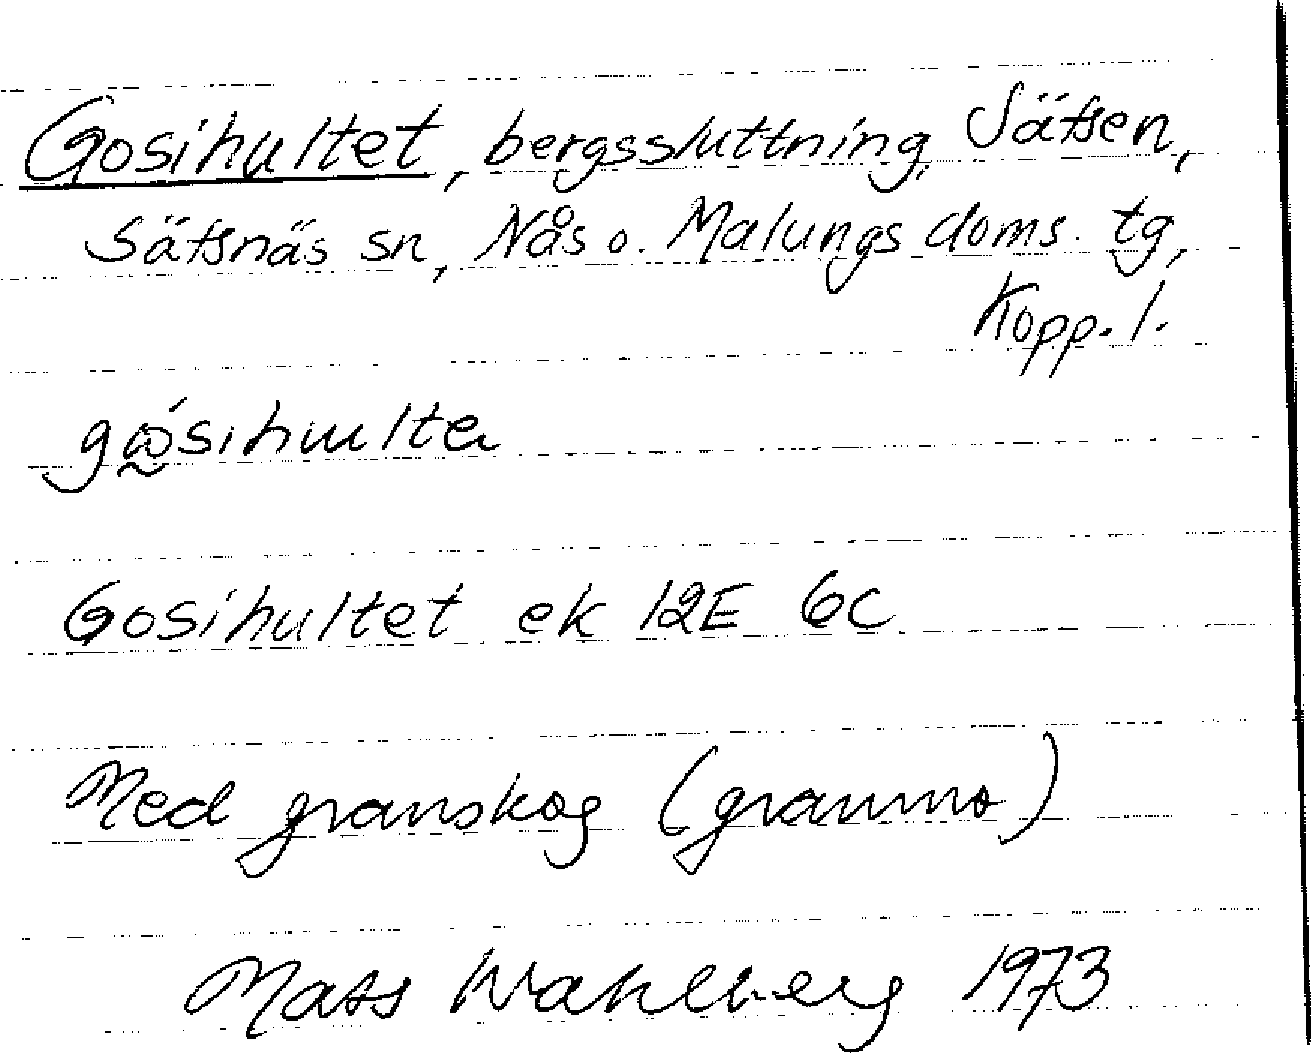 Gosihultet, bergssluttning, Sätsen,
Sätsnäs sn, Nås o. Malungs doms. tg,
Kopp. l.
Gosihultet ek 12E 6c
Med granskog (granmo)
Mats Wahlberg 1973